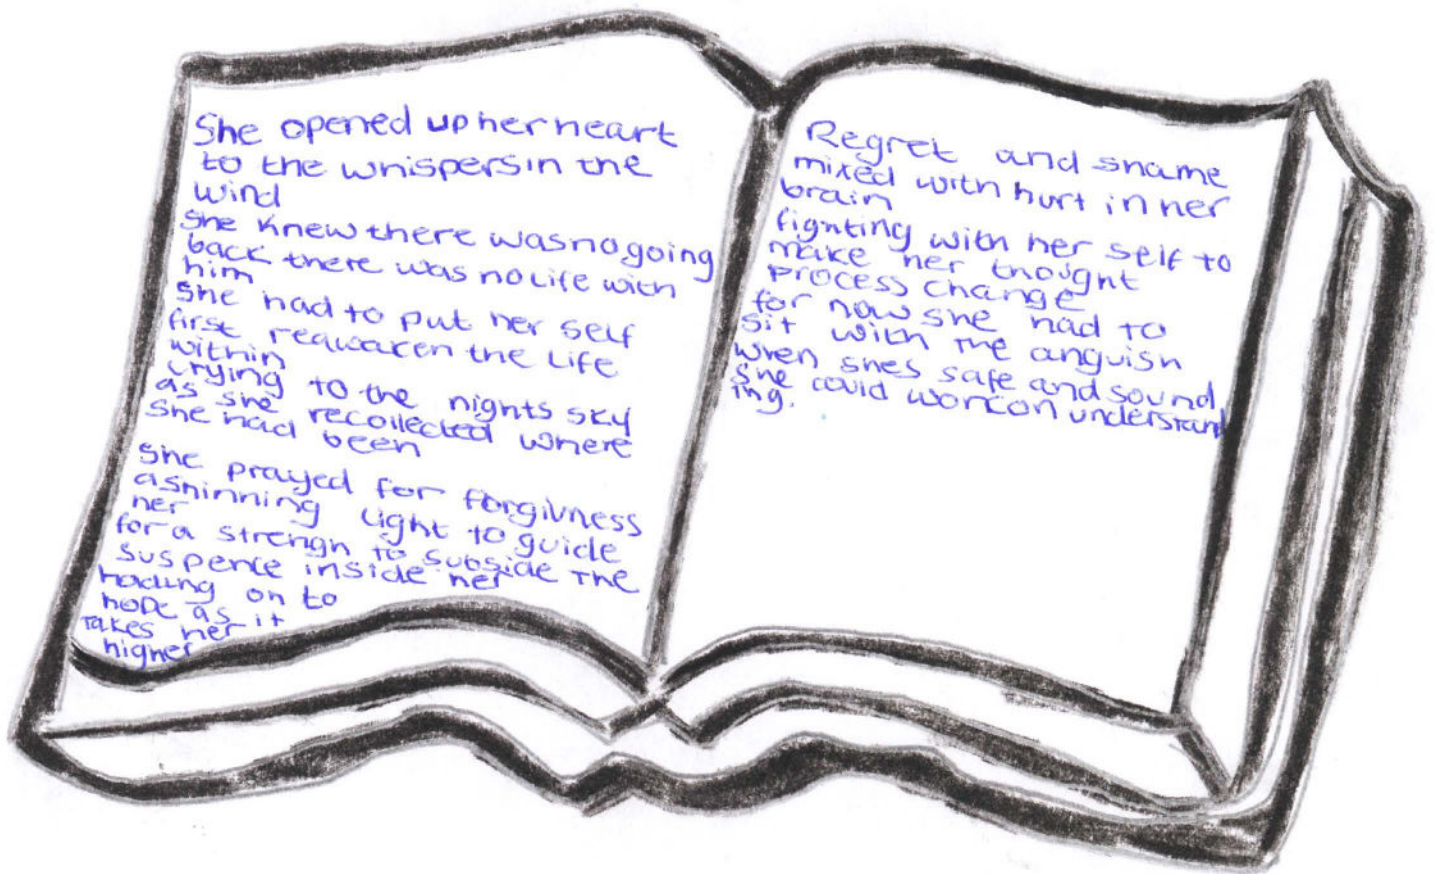 She opened up her heart
to the whispers in the
wind
She knew there was no going
back there was no life with
him
She had to put her self
first reawaken the life
within
crying to the nights sky
as she recollected where
she had been
She prayed for forgivness
a shinning light to guide
her
for a strengh to subside the
suspence inside her
holding on to
hope as it
takes her
higher
Regret and shame
mixed with hurt in her
brain
fighting with her self to
make her thought
process change
for now she had to
sit with the anguish
when shes safe and sound
she could work on understand
ing.